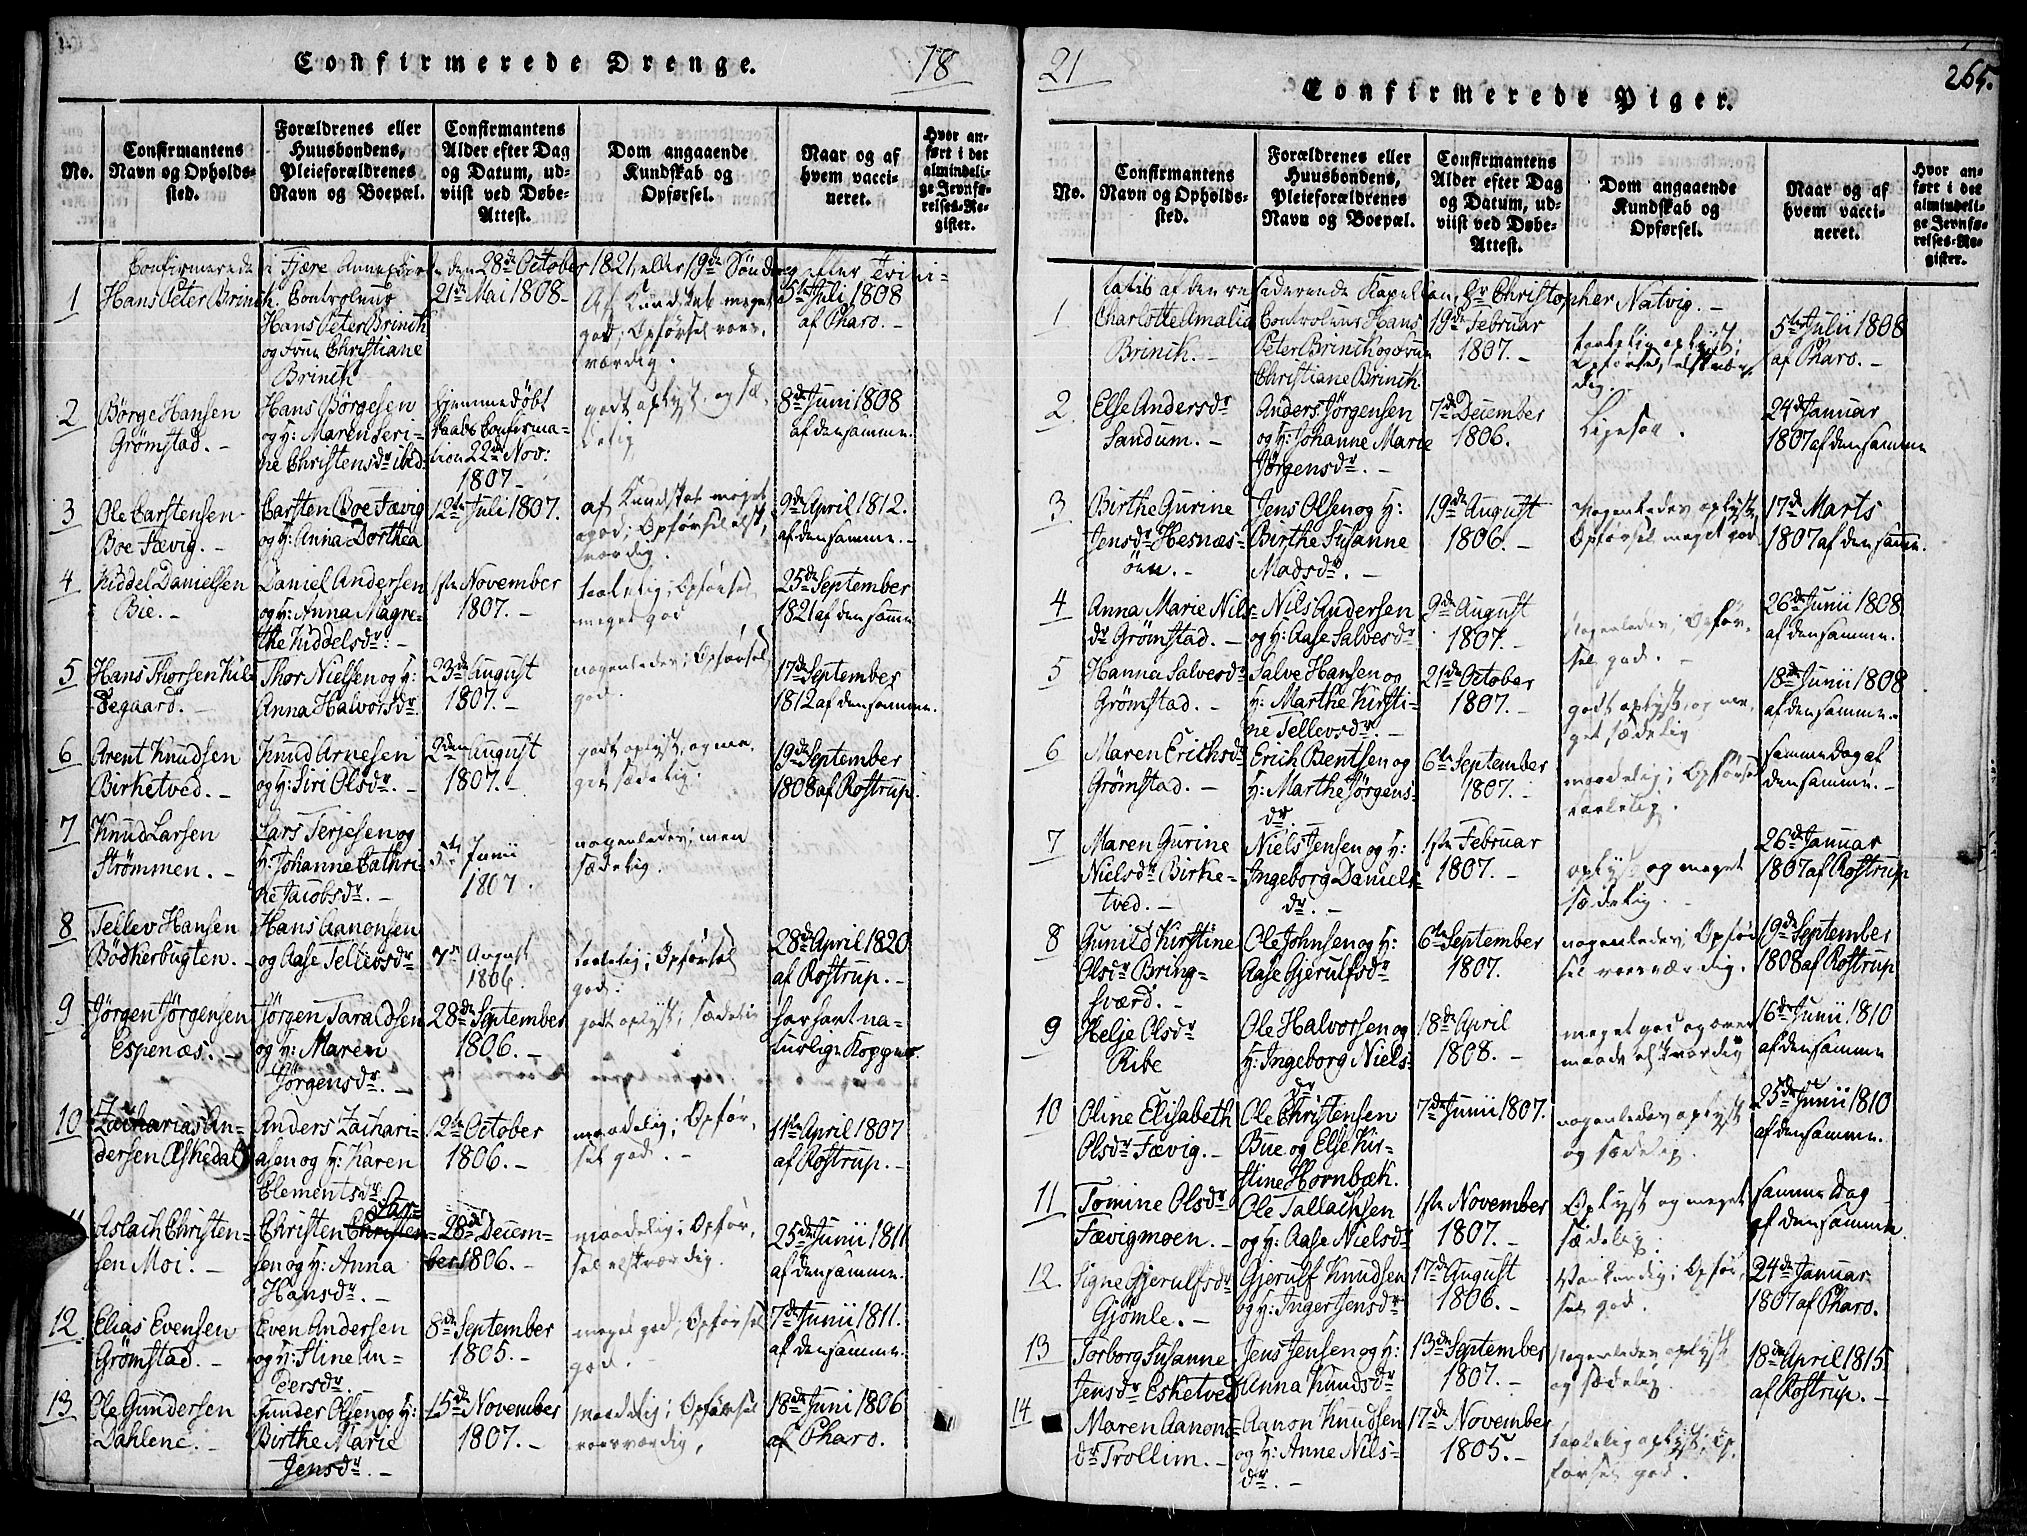 Confirmerede Drenge.
18
No.
Confirmantens Navn og Opholds-sted.
Forældrenes eller Huusbondens, Pleieforældrenes Navn og Boepæl.
Confirmantens Alder efter Dag og Datum, ud-viist ved Døbe-Attest.
Dom angaaende Kundskab og Opførsel.
Naar og af hvem vacci-neret.
Hvor an-ført i det almindeli-ge Jevnfø-relses-Re-gister.
Confirmerede i Fjære Annexkirke den 28de October 1821, eller 19de Søndag efter Trini-
1
Hans Peter Brinck.
Controleur
Hans Peter Brinck
og Frue Christiane
Brinck
21de Mai 1808-
Af Kundskab meget
god; Opførsel roes-
værdig.
5te Juli 1808
af Pharo. -
2
Børge Hansen
Grømstad. -
Hans Børgesen
og H: Maren Seri-
ne Christensdr ibid:
Hjemmedøbt
Daabs Confirma-
tion 22de Nov:
1807-
godt oplyst og sæ-
delig
8de Juni 1808
af densamme.
3
Ole Carstensen
Boe Fævig. -
Carsten Boe Fævig
og H: Anna Dorthea
12te Juli 1807.
af Kundskab meget
god; Opførsel elsk-
værdig.
9de April 1812.
af densamme. -
4
Kiddel Danielsen
Bie. -
Daniel Andersen
og H: Anna Magre-
the Kiddelsdr. -
1ste November
1807. -
taalelig; Opførsel
meget god
25de September
1821 af densamme
5
Hans Thorsen Kil-
degaard. -
Thor Nielsen og H:
Anna Halvorsdr.
23de August
1807. -
nogenledes; Opførsel
god.
17de September
1812 af densamme.
6
Arent Knudsen
Birketved. -
Knud Arnesen
og H: Siri Olsdr. -
2den August
1807. -
godt oplyst, og me-
get sædelig.
19de September
1808 af Rostrup.
7
Knud Larsen
Strømmen. -
Lars Terjesen og
H: Johanne Cathri-
ne Jacobsdr. -
5te Junii
1807.
nogenledes; men
sædelig.
8
Tellev Hansen
Bødkerbugten. -
Hans Aanonsen
og Aase Tellevsdr
7de August
1806.
taalelig; Opførsel
god.
28de April 1820
af Rostrup. -
9
Jørgen Jørgensen
Espenæs. -
Jørgen Taraldsen
og H: Maren
Jørgensdr. -
28de September
1806. -
godt oplyst; sædelig
har havt na-
turlige Kopper.
10
Zacharias An-
dersen Æskedal
Anders Zachari-
asen og H: Karen
Clementsdr.
12te October
1806. -
maadelig; Opfør-
sel god. -
11te April 1807
af Rostrup. -
11
Aslach Christen-
sen Moi. -
Christen Christen-
Lar-
sen og H: Anna
Hansdr. -
28de Decem-
ber 1806. -
maadelig; Opfør-
sel elskværdig.
25de Junii 1811
af densamme.
12
Elias Evensen
Grømstad. -
Even Andersen
og H: Stine An-
dersdr. -
8de September
1805. -
meget god; Opførsel
god. -
7de Junii 1811.
af densamme.
13
Ole Gundersen
Dahlene. -
Gunder Olsen og H:
Birthe Marie
Jensdr. -
15de November
1807. -
maadelig; Opførsel
roesværdig,
18de Juni 1806
af Pharo.
21
Confirmerede Piger.
265.
No.
Confirmantens Navn og Opholds-sted.
Forældrenes eller Huusbondens, Pleieforældrenes Navn og Boepæl.
Confirmantens Alder efter Dag og Datum, ud-viist ved Døbe-Attest.
Dom angaaende Kundskab og Opførsel.
Naar og af hvem vacci-neret.
Hvor an-ført i det almindeli-ge Jevnfø-relses-Re-gister.
tatis af den residerende Kapellan, Hr Christopher Natvig. -
1
Charlotte Amalia
Brinck. -
Controleur Hans
Peter Brinck og Frue
Christiane Brinck.
19de Februar
1807. -
taalelig oplyst;
Opførsel, elskvær-
dig.
5te Julii 1808
af Pharo. -
2
Else Andersdr
Sandum. -
Anders Jørgensen
og H: Johanne Marie
Jørgensdr. -
7de December
1806.
Ligesaa.
24de Januar
1807 af densamme
3
Birthe Gurine
Jensdr Hesnæs-
øen. -
Jens Olsen og H:
Birthe Susanne
Madsdr. -
19de August
1806. -
Nogenledes oplyst
Opførsel meget god
17de Marts
1807 af densamme.
4
Anna Marie Nils-
dr Grømstad. -
Nils Andersen
og H: Aase Salvesdr
9de August
1807. -
Nogenledes; Opfør-
sel god. -
26de Junii 1808
af densamme.
5
Hanna Salvesdr
Grømstad. -
Salve Hansen og
H: Marthe Kirsti-
ne Tellevsdr. -
21de October
1807. -
godt oplyst, og me-
get sædelig
18de Junii 1808
af densamme.
6
Maren Erichsdr
Grømstad. -
Erich Bentsen og
H: Marthe Jørgens-
dr. -
6te September
1807. -
maadelig; Opførsel
taalelig.
samme Dag af
densamme. -
7
Maren Gurine
Nielsdr Birke-
tved. -
Niels Jensen og H:
Ingeborg Daniels-
dr. -
1ste Februar
1807. -
oplyst og meget
sædelig.
26de Januar
1807 af Rostrup
8
Gunild Kirstine
Olsdr Bring-
sværd. -
Ole Johnsen og H:
Aase Gjerulfsdr
6te September
1807.
nogenledes; Opfør-
sel roesværdig.
19de September
1808 af Rostrup
9
Helje Olsdr
Ribe
Ole Halvorsen og
H: Ingeborg Niels-
dr
18de April
1808. -
meget god og over
maade elskværdig
16de Junii 1810
af densamme
10
Oline Elisabeth
Olsdr Fævig. -
Ole Christensen
Bue og Else Kir-
stine Hornbæk.
7de Junii 1807.
nogenledes oplyst
og sædelig.
25de Junii 1810
af densamme.
11
Tomine Olsdr
Fævigmoen. -
Ole Tallachsen
og H: Aase Nielsdr
1ste November
1807. -
Oplyst og meget
sædelig.
samme Dag
af densamme
12.
Signe Gjerulfsdr
Gjømle. -
Gjerulf Knudsen
og H: Inger Jensdr
17de August
1806. -
Opfør-
sel god.
24de Januar
1807 af Pharo.
13
Torborg Susanne
Jensdr Esketved
Jens Jensen og H:
Anna Knudsdr
13de September
1807. -
Nogenledes oplyst
og sædelig.
18de April 1815
af Rostrup. -
14
Maren Aanons-
dr Trollim. -
Aanon Knudsen
og H: Anne Nils-
dr. -
17de November
1805. -
taalelig oplyst; Op-
førsel god.